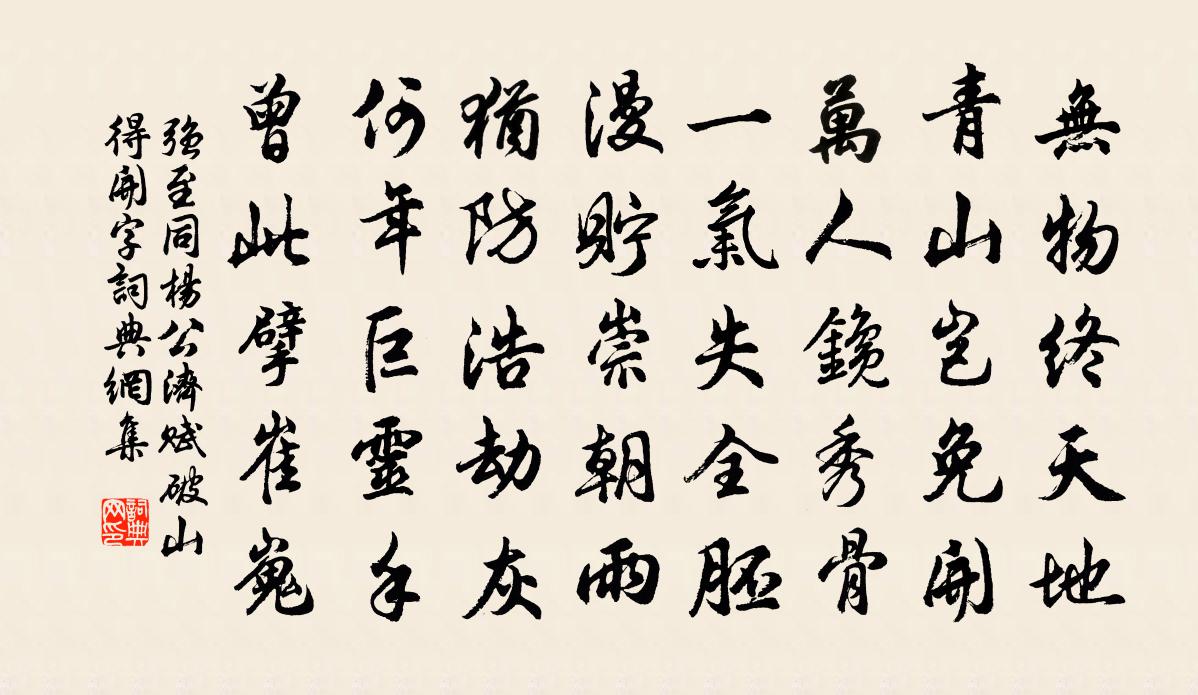 無物終天地
青山豈免開
萬人鑱秀骨
一氣失全胚
漫貯崇朝雨
猶防浩劫灰
何年巨靈手
曾此擘崔嵬
強至同楊公濟賦破山
得開字詞典網集
詞典
网印